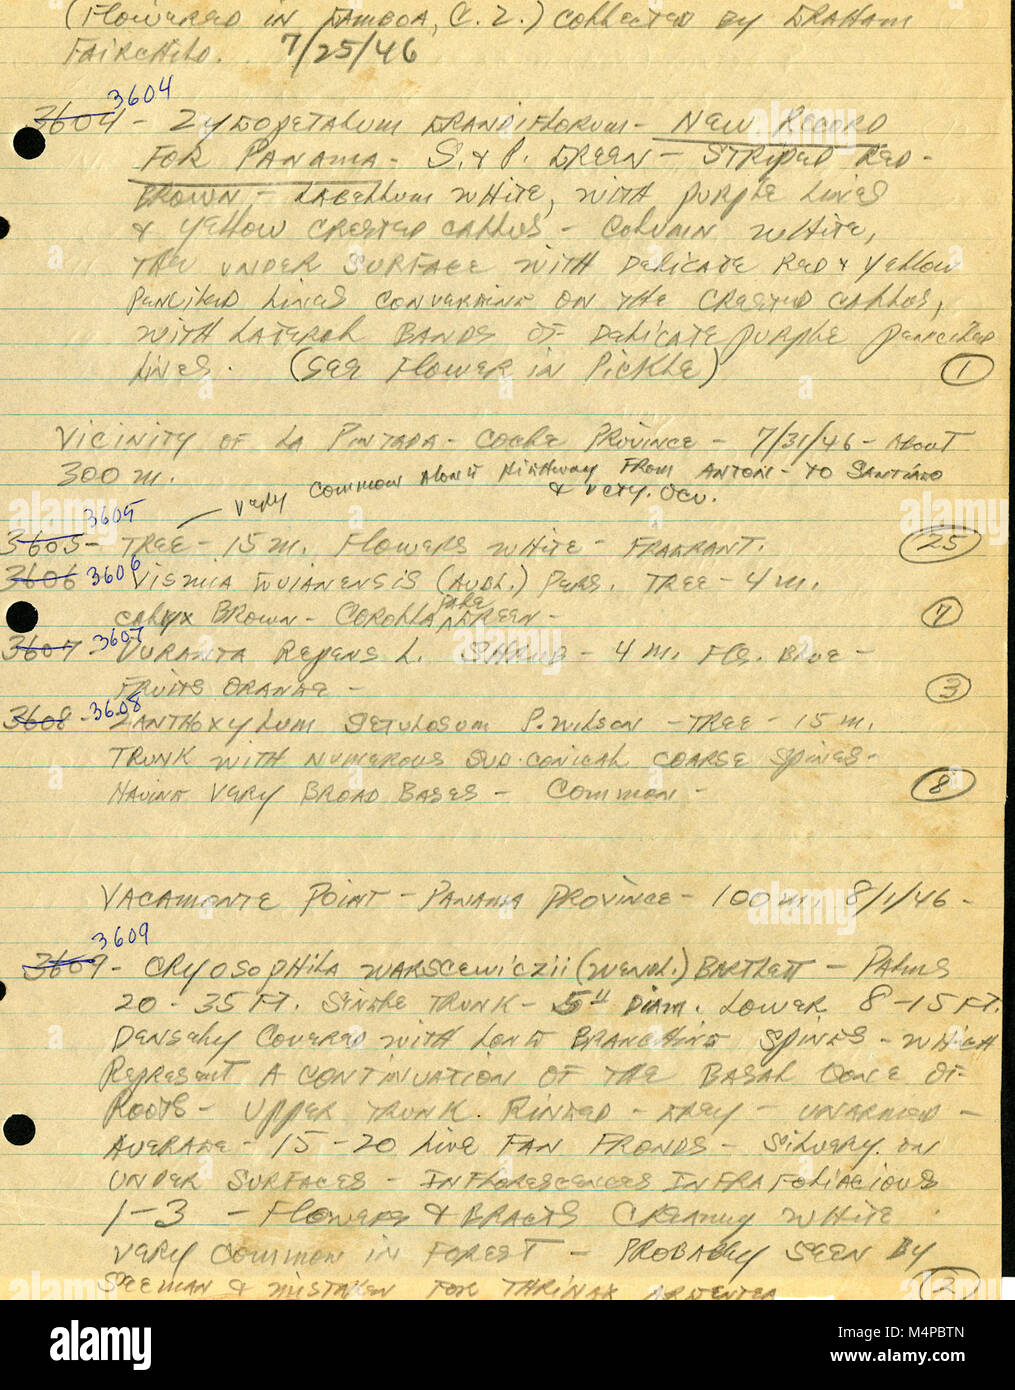 (Flowered in Gamboa, C.Z.) collected by Graham
Fairchild. 7/25/46
3604
3604 - Zygopetalum grandiflorum - New Record
for Panama - S. & P. green - striped red-
brown - labellum white, with purple lines
& yellow crested callus - column white,
the under surface with delicate red & yellow
penciled lines converging on the crested callus,
with lateral bands of delicate purple penciled
lines. (See flower in pickle) 1
Vicinity of La Pintada - Cocle Province - 7/31/46 - About
300 m.
very common along highway from Anton - to Santiago
& vcty. Ocu.
3605
3605 - Tree - 15 m. Flowers white - fragrant. 25
3606 3606 Vismia guianensis (Aubl.) Pers. Tree - 4 m.
calyx brown - corolla pale green - 7
3607 - 3607 Duranta repens L. Shrub - 4 m. Fls. blue -
Fruits orange - 3
3608 - 3608 Zanthoxylum setulosum P. Wilson - Tree - 15 m.
Trunk with numerous sub-conical coarse spines -
having very broad bases - Common - 8
Vacamonte Point - Panama Province - 100 m. 8/1/46 -
3609
3609 - Cryosophila warscewiczii (Wendl.) Bartlett - Palms
20 - 35 ft. Single trunk - 5" diam. Lower 8 - 15 ft.
densely covered with long branching spines - which
represent a continuation of the basal cone of
roots - Upper trunk ringed - grey - unarmed -
Average - 15 - 20 live fan fronds - silvery on
under surfaces - Inflorescences infrafoliacious
1 - 3 - Flowers & bracts creamy white
very common in forest - probably seen by
Seeman & mistaken for Thrinax argentea 2
alamy
Image ID: M4PBTN
www.alamy.com